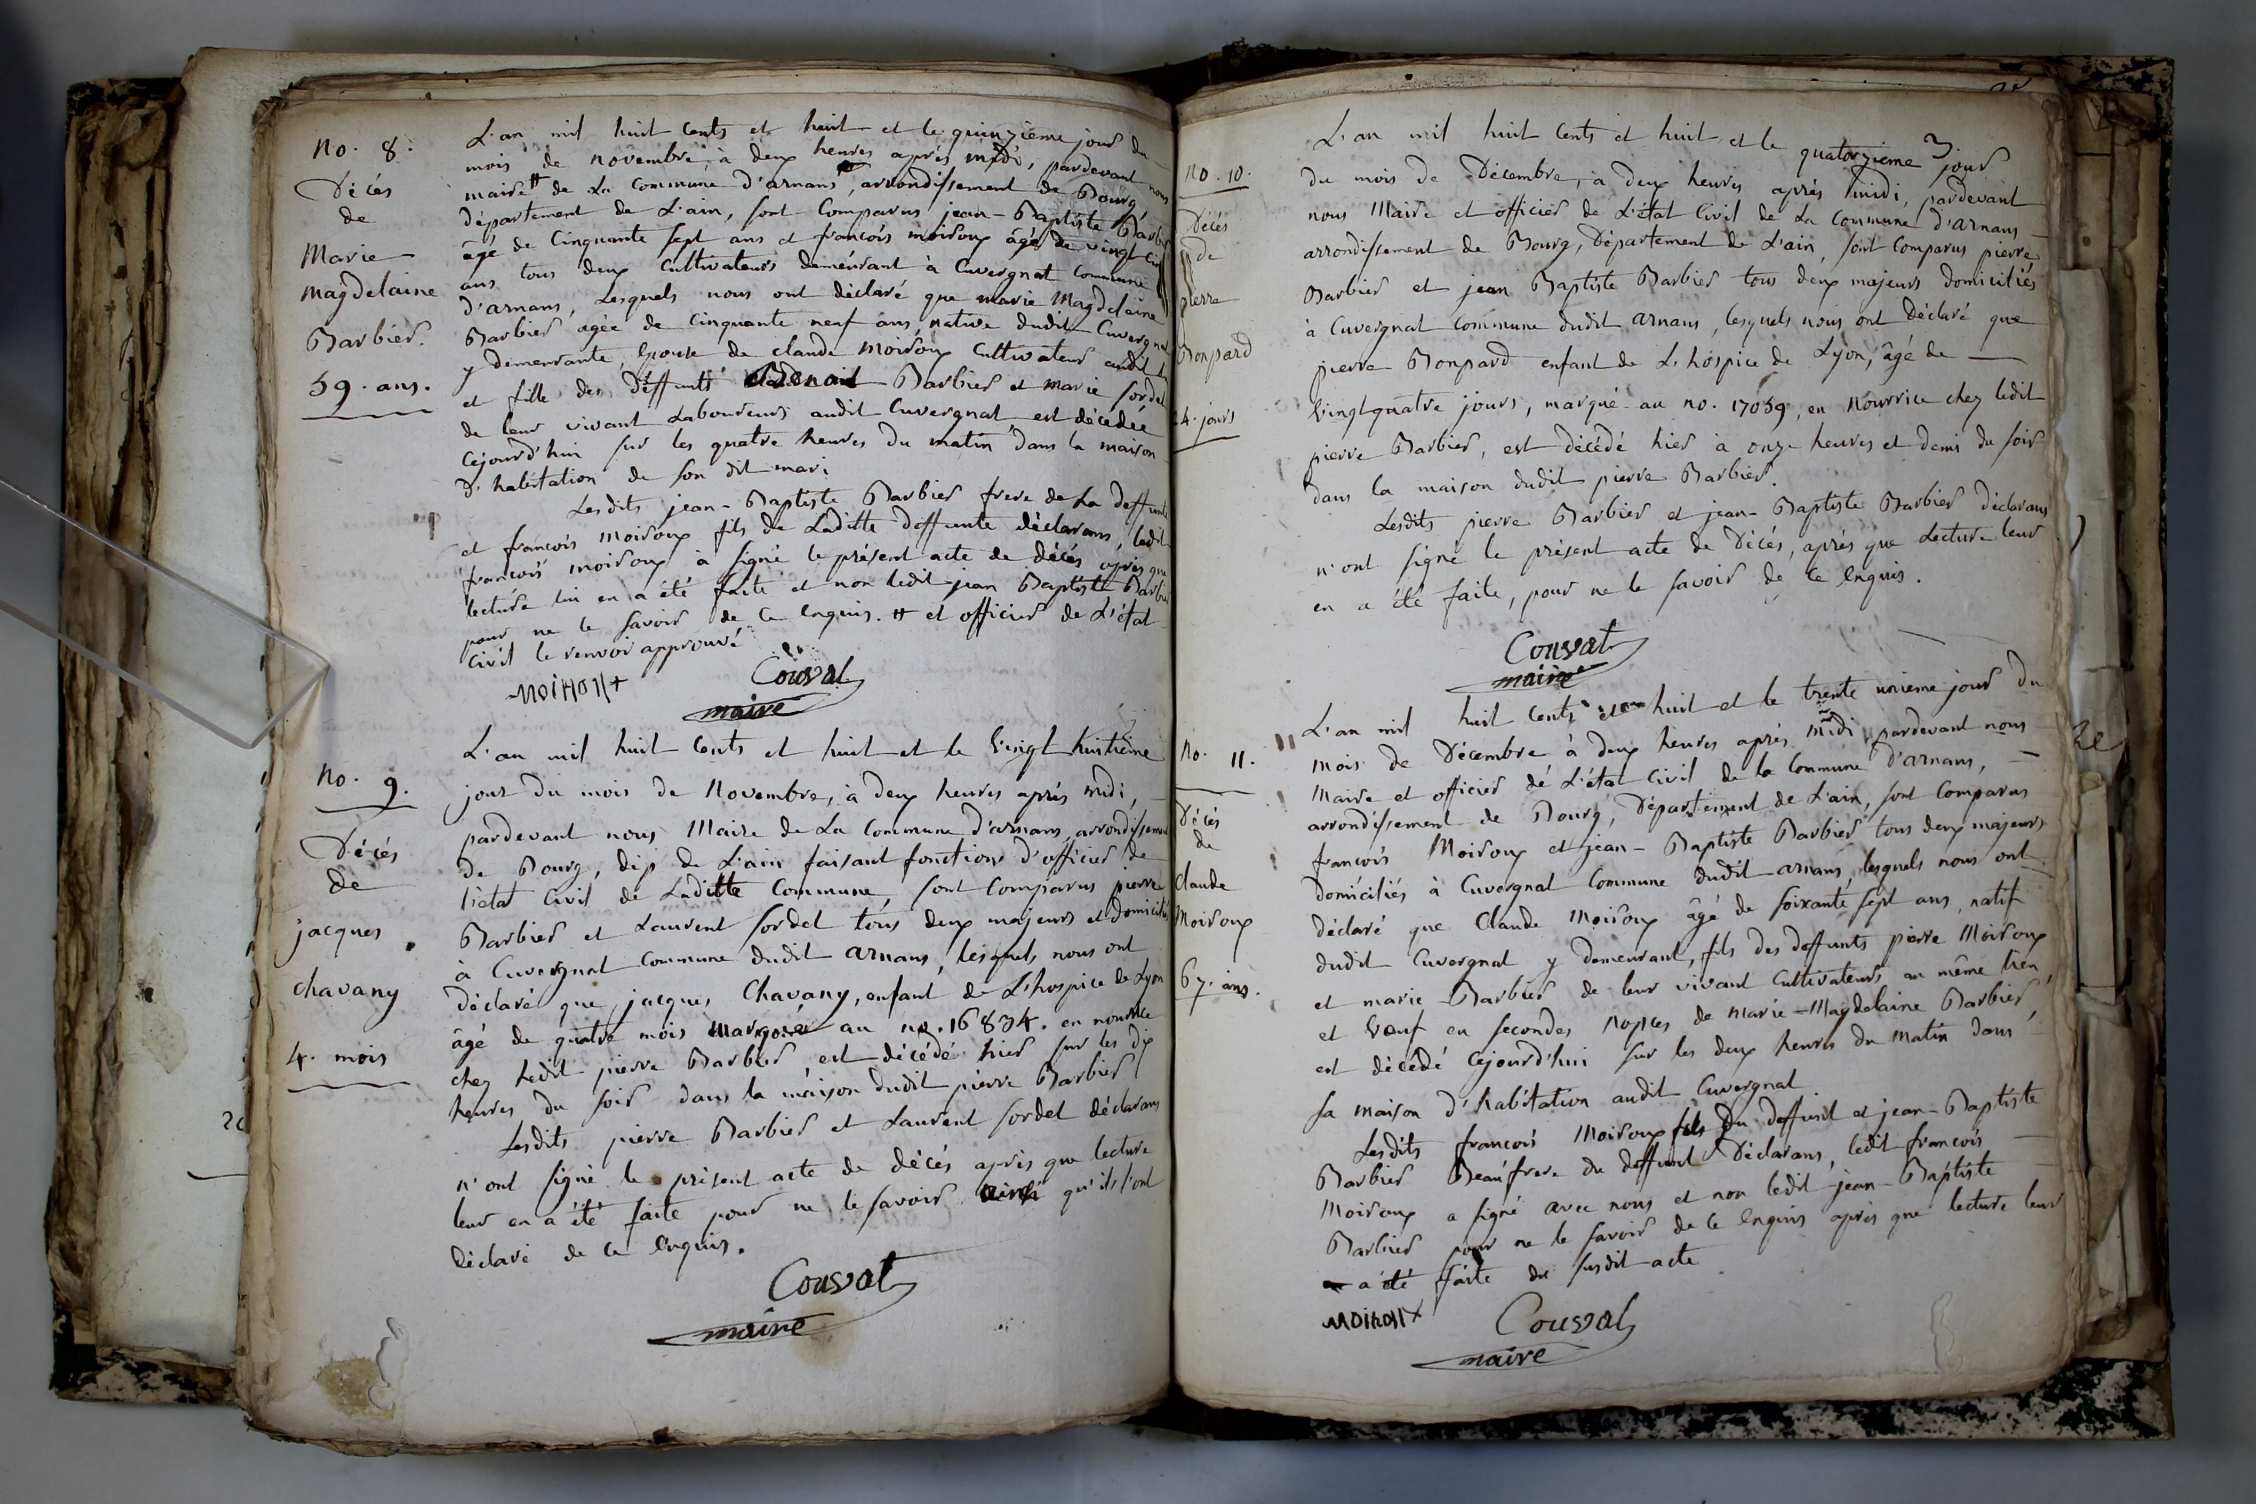 No. 8.
Décés
de
Marie
Magdelaine
Barbier.
59. ans.
L'an mil huit cents et huit et le quinzième jour du
mois de novembre, à deux heures après midi, pardevant nous
maire # de La Commune d'arnans, arrondissement de Bourg,
département de L'ain, sont Comparus jean-Baptiste Barbier
âgé de Cinquante sept ans et francois moiroux âgé de vingt cinq
ans tous deux Cultivateurs demeurant à Cuvergnat Commune
d'arnans, Lesquels nous ont déclaré que marie Magdelaine
Barbier âgée de Cinquante neuf ans, native dudit Cuvergnat
y demeurante, Epouse de claude Moiroux Cultivateur audit
et fille des déffunts Benoit Barbier et Marie Sordet
de leur vivant Laboureurs audit Cuvergnat est décédée
Cejourd'hui sur les quatre heures du matin dans la maison
d'habitation de son dit mari
Lesdits jean-Baptiste Barbier frere de La deffunte
et francois Moiroux fils de Laditte deffunte déclarans, ledit
francois moiroux à signé le présent acte de décés après que
lecture lui en a été faite et non ledit jean Baptiste Barbier
pour ne le savoir de ce Enquis. # et officier de L'état
civil le renvoi approuvé
MOIROUX
Couval
maire
No. 9.
Décés
de
jacques
chavany
4. mois
L'an mil huit Cents et huit et le vingt huitième
jour du mois de Novembre, à deux heures après midi,
pardevant nous Maire de La Commune d'arnans, arrondissement
de Bourg, dép de L'ain faisant fonctions d'officier de
l'état Civil de Laditte Commune, sont Comparus pierre
Barbier et Laurent Sordet tous deux majeurs et domiciliés
à Cuvergnat Commune dudit arnans, lesquels nous ont
déclaré que jacques Chavany, enfant de L'hospice de Lyon
âgé de quatre mois marqué au no. 16834. en nourrice
chez ledit pierre Barbier est décédé hier sur les dix
heures du soir dans la maison dudit pierre Barbier
Lesdits pierre Barbier et Laurent Sordet déclarans
n'ont signé le présent acte de décés après que lecture
leur en a été faite pour ne le savoir ainsi qu'ils l'ont
déclaré de ce Enquis.
Couval
maire
No. 10.
Décés
de
pierre
Bonpard
24. jours
L'an mil huit Cents et huit et le quatorzieme jour
du mois de Décembre, à deux heures après midi, pardevant
nous Maire et officier de L'état Civil de La Commune d'arnans
arrondissement de Bourg, Département de L'ain, sont Comparus pierre
Barbier et jean Baptiste Barbier tous deux majeurs domiciliés
à Cuvergnat Commune dudit arnans, lesquels nous ont déclaré que
pierre Bonpard enfant de L'hospice de Lyon, âgé de
vingtquatre jours, marqué au no. 17059, en Nourrice chez ledit
pierre Barbier, est décédé hier à onze heures et demi du soir
dans la maison dudit pierre Barbier.
Lesdits pierre Barbier et jean-Baptiste Barbier déclarans
n'ont signé le présent acte de Décés, après que Lecture leur
en a été faite, pour ne le savoir de ce Enquis.
Couval
maire
No. 11.
Décés
de
claude
Moiroux
67. ans.
L'an mil huit Cents et huit et le trente unieme jour du
mois de Décembre à deux heures après midi pardevant nous
Maire et officier de L'état Civil de la Commune d'arnans,
arrondissement de Bourg, Département de L'ain, sont Comparus
francois Moiroux et jean-Baptiste Barbier tous deux majeurs
domiciliés à Cuvergnat Commune dudit arnans, lesquels nous ont
déclaré que Claude Moiroux âgé de soixante sept ans, natif
dudit Cuvergnat y demeurant, fils des deffunts pierre Moiroux
et marie Barbier de leur vivant Cultivateurs au même lieu,
et Veuf en secondes nopces de Marie-Magdelaine Barbier,
est décédé Cejourd'hui sur les deux heures du Matin dans
sa maison d'habitation audit Cuvergnat
Lesdits francois Moiroux fils du deffunt et jean-Baptiste
Barbier Beaufrere du deffunt Déclarans, ledit francois
Moiroux a signé avec nous et non ledit jean-Baptiste
Barbier pour ne le savoir de ce Enquis après que lecture leur
a été faite du susdit acte
MOIROUX
Couval
maire